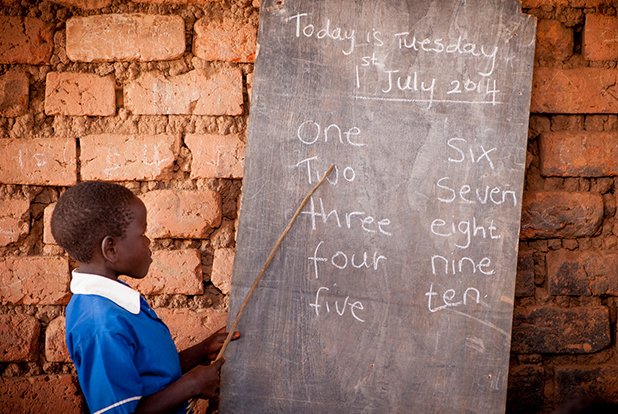 Today is Tuesday
1st July 2014
One
Two
three
four
five
Six
Seven
eight
nine
ten.